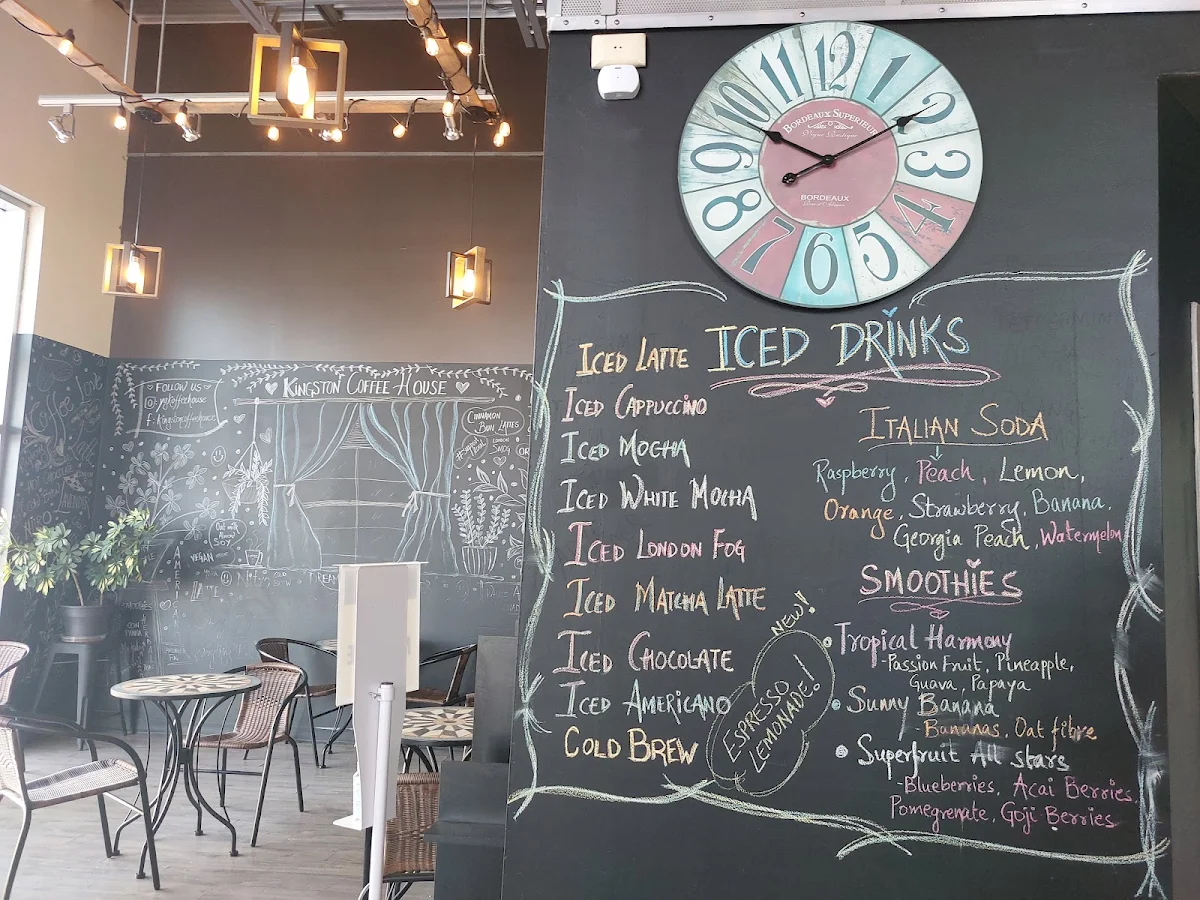 12
1
2
3
4
5
6
7
8
9
10
11
BORDEAUX SUPERIEUR
BORDEAUX
ICED DRINKS
ICED LATTE
ICED CAPPUCCINO
ICED MOCHA
ICED WHITE MOCHA
ICED LONDON FOG
ICED MATCHA LATTE
ICED CHOCOLATE
ICED AMERICANO
COLD BREW
NEW!
ESPRESSO
LEMONADE!
ITALIAN SODA
Raspberry, Peach, Lemon,
Orange, Strawberry, Banana,
Georgia Peach, Watermelon
SMOOTHIES
Tropical Harmony
-Passion Fruit, Pineapple,
Guava, Papaya
Sunny Banana
-Bananas, Oat fibre
Superfruit All stars
-Blueberries, Acai Berries,
Pomegrenate, Goji Berries
FOLLOW US
KINGSTON COFFEE HOUSE
CINNAMON
BUN LATTES
LONDON
VEGAN